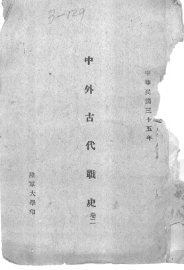 3-729
中華民國三十五年
中外古代戰史卷二
陸軍大學印